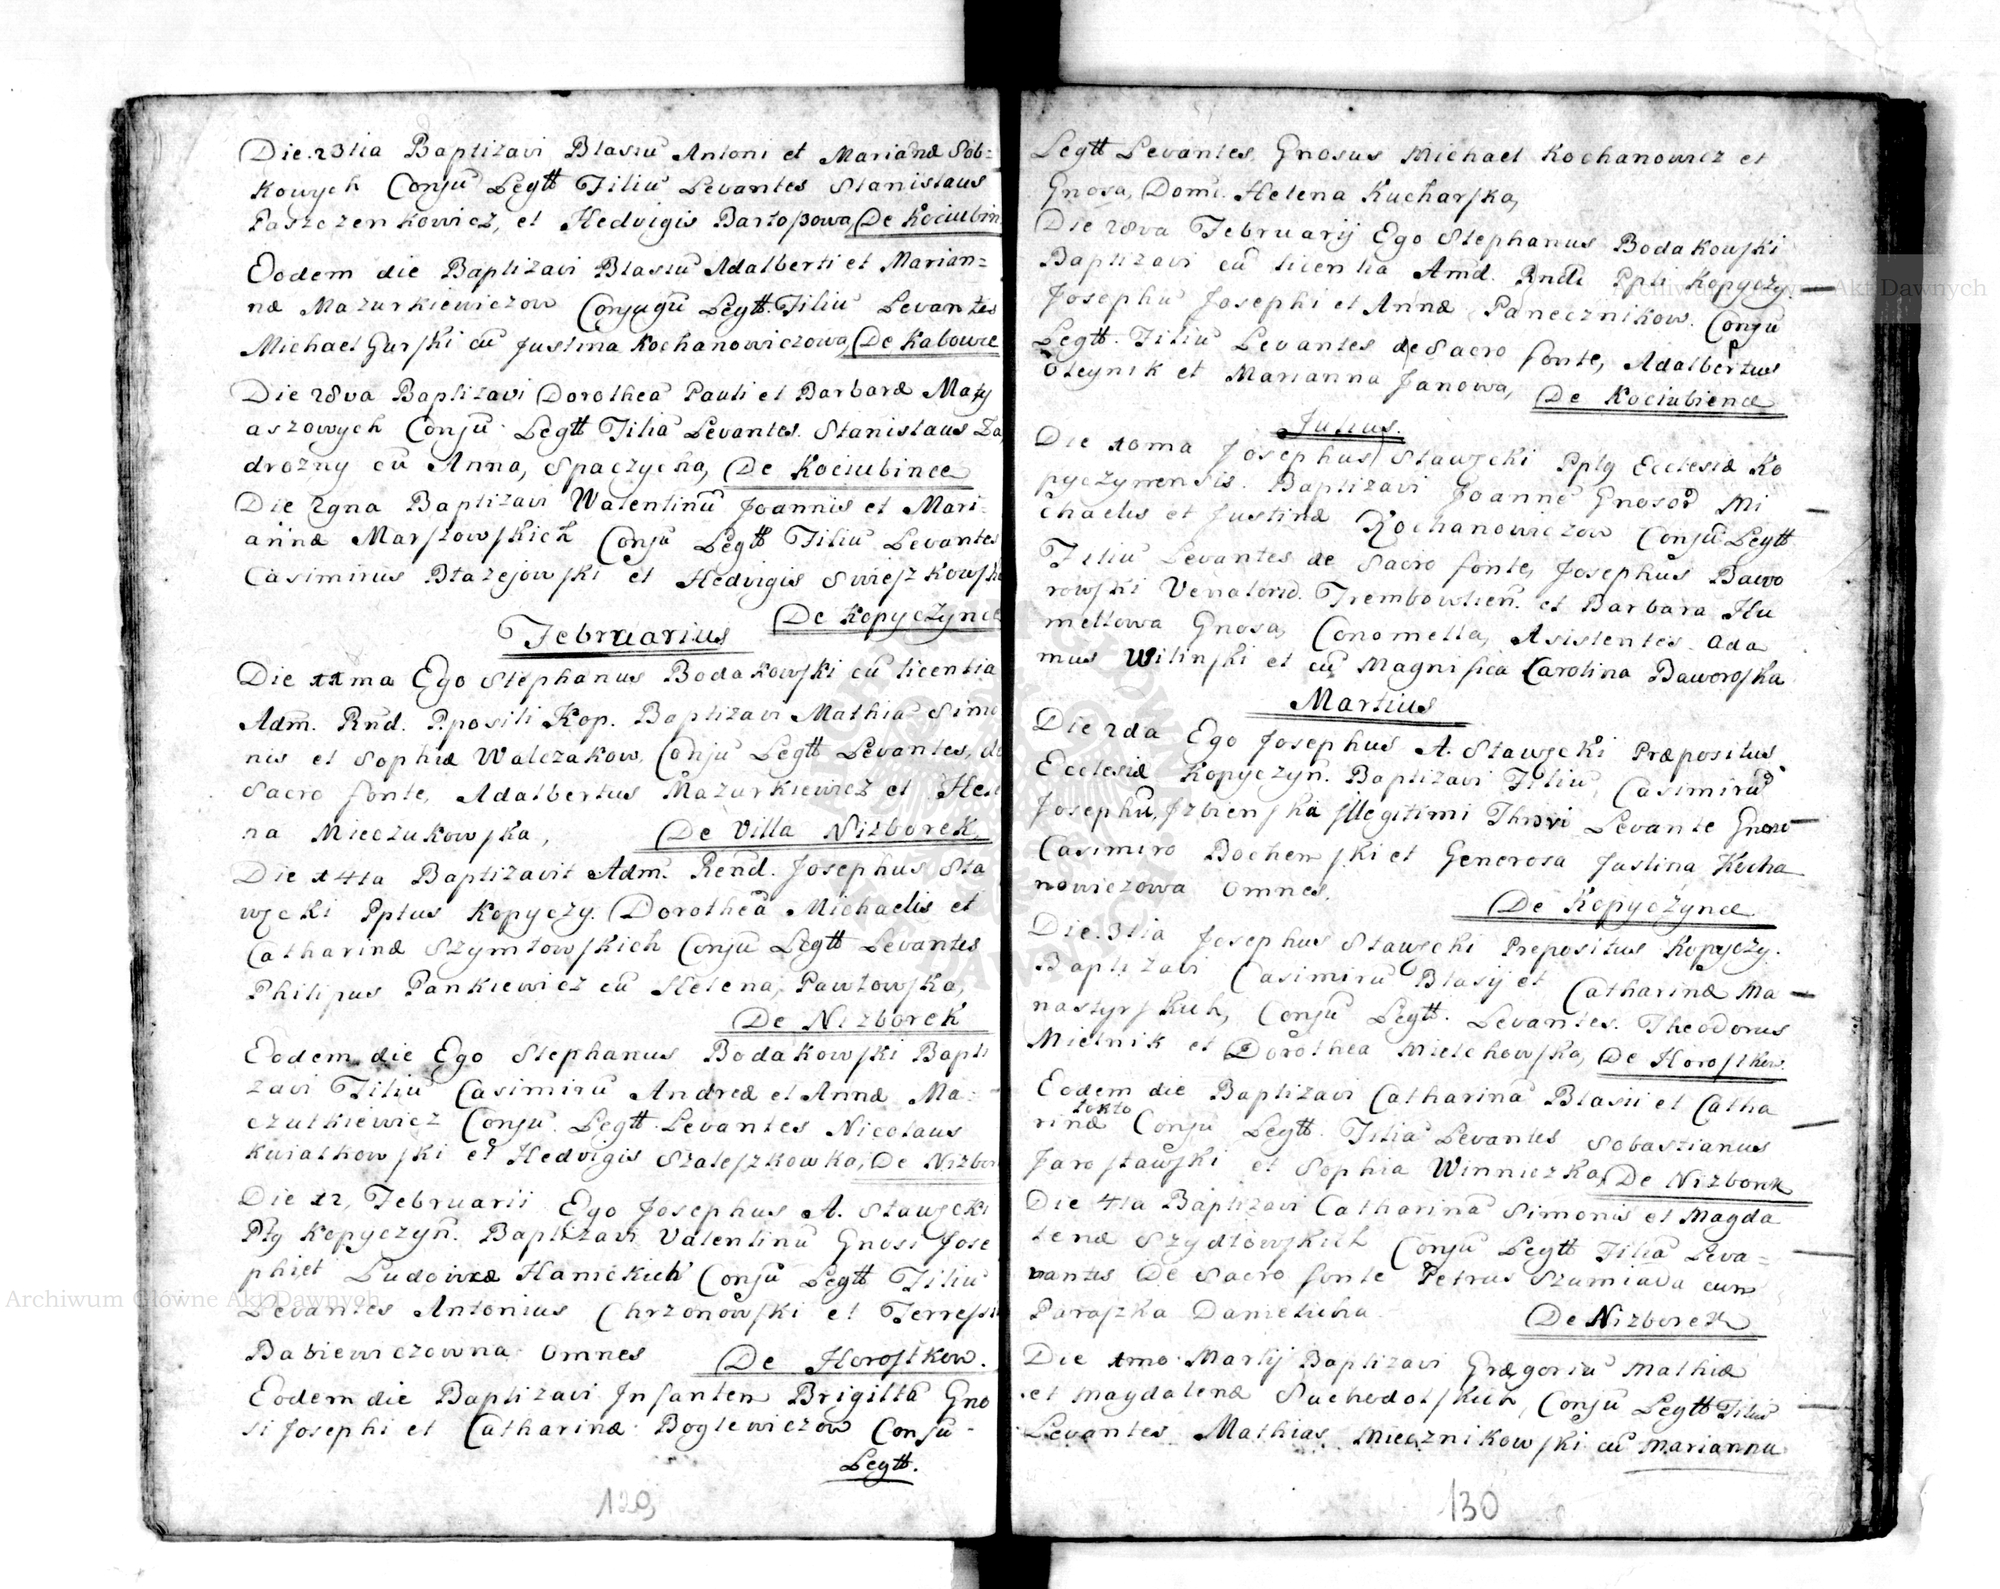 Die 23tia Baptizavi Blasiū Antoni et Marianæ Sob-
kowych Conjū Legtt Filiū Levantes Stanislaus
Paszczenkowicz, et Hedvigis Bartoszowa, De Kociubin
Eodem die Baptizavi Blasiū Adalberti et Marian=
næ Mazurkiewiczow Conjugū Legtt. Filiū Levantes
Michael Gurski cū Justina Kochanowiczowa,
Die 28va Baptizavi Dorotheā Pauli et Barbaræ Maty
aszowych Conjū Legtt Filiā Levantes. Stanislaus Za
drozny cū Anna, Spaczycha, De Kociubince
Die 29na Baptizavi Walentinū Joannis et Mari-
annæ Marszowskich Conjū Legtt Filiū Levantes
Casimirus Błażejowski et Hedvigis
De Kopyczynce
Februarius
Die 11ma Ego Stephanus Bodakowski cū licentia
Adm. Rnd. Ppositi Kop. Baptizavi Mathiā Simo
nis et Sophiæ Walczakow, Conjū Legtt Levantes, de
Sacro fonte, Adalbertus Mazurkiewicz et Hele
na Mieczukowska, De Villa Nizborek,
Die 14ta Baptizavit Adm. Rend. Josephus Sta
wski Pptus Kopyczy. Dorotheā Michaelis et
Catharinæ Szymłowskich Conjū Legtt Levantes
Philipus Pankiewicz cū Helena, Pawłowska,
De Nizborek
Eodem die Ego Stephanus Bodakowski Bapti
zavi Filiū Casimirū Andreæ et Annæ Ma=
czutkiewicz Conjū. Legtt. Levantes Nicolaus
Kwiatkowski et Hedvigis Szaleszkowka, De Nizbor
Die 12, Februarii Ego Josephus A. Stawscki
Ptg Kopyczyn. Baptizavi Valentinū Gnosi Jose
phi et Ludowicæ Hanickich Conjū Legtt Filiū
Levantes Antonius Chrzonowski et
Babiewiczowna Omnes De Horostkow.
Eodem die Baptizavi Infanten Brigittā Gno
si Josephi et Catharinæ Boglewiczow Conju-
Legtt.
129
Legtt Levantes, Gnosus Michael Kochanowicz et
Gnosa, Domi. Helena Kucharska,
Die 28va Februarij Ego Stephanus Bodakowski
Baptizavi cū licentia Amd. Rndi Ppti Kopyczy.
Josephū Josephi et Annæ Panecznikow. Conjū
Legtt. Filiū Levantes de Sacro fonte, Adalbertus
Oleynik et Marianna Janowa, De Kociubience
Julius.
Die 10ma Josephus Stawscki Pptg Ecclesiæ Ko
pyczynensis. Baptizavi Joannē Gnosor Mi
chaelis et Justinæ Kochanowiczow Conjū Legtt
Filiū Levantes de Sacro fonte, Josephus Bawo
rowski Trembowlien. et Barbara Hu
mellowa Gnosa, Asistentes Ada
mus Wilinski et cū Magnifica Carolina Baworoska
Martius
Die 2da Ego Josephus A. Stawscki Præpositus
Ecclesiæ Kopyczyn. Baptizavi Filiū, Casimirū
Josephū, Illegitimi Thori Levante
Casimiro Bochenski et Generosa Justina Kocha
nowiczowa Omnes, De Kopyczynce
Die 3tia Josephus Stawscki Prepositus Kopyczy.
Baptizavi Casimirū Blasij et Catharinæ Ma
nastyrskich, Conjū Legtt. Levantes. Theodorus
Mielnik et Dorothea Mielchowska, De Horostkow
Eodem die Baptizavi Catharinā Blasii et Catha
rinæ Conjū Legtt. Filiā Levantes Sobastianus
Jarosławski et Sophia Winniczka, De Nizborek
Die 4ta Baptizavi Catharinā Simonis et Magda
lenæ Szydłowskich Conjū Legtt Filiā Leva=
vantes De Sacro fonte Petrus Szumiada cum
Paraszka Danielucha De Nizborek
Die 1mo Martij Baptizavi Grægoriū Mathiæ
et Magdalenæ Suchodolskich, Conjū Legtt Filiū
Levantes Mathias Miecznikowski cū Marianna
130
Archiwum Główne Akt Dawnych
Archiwum Główne Akt Dawnych